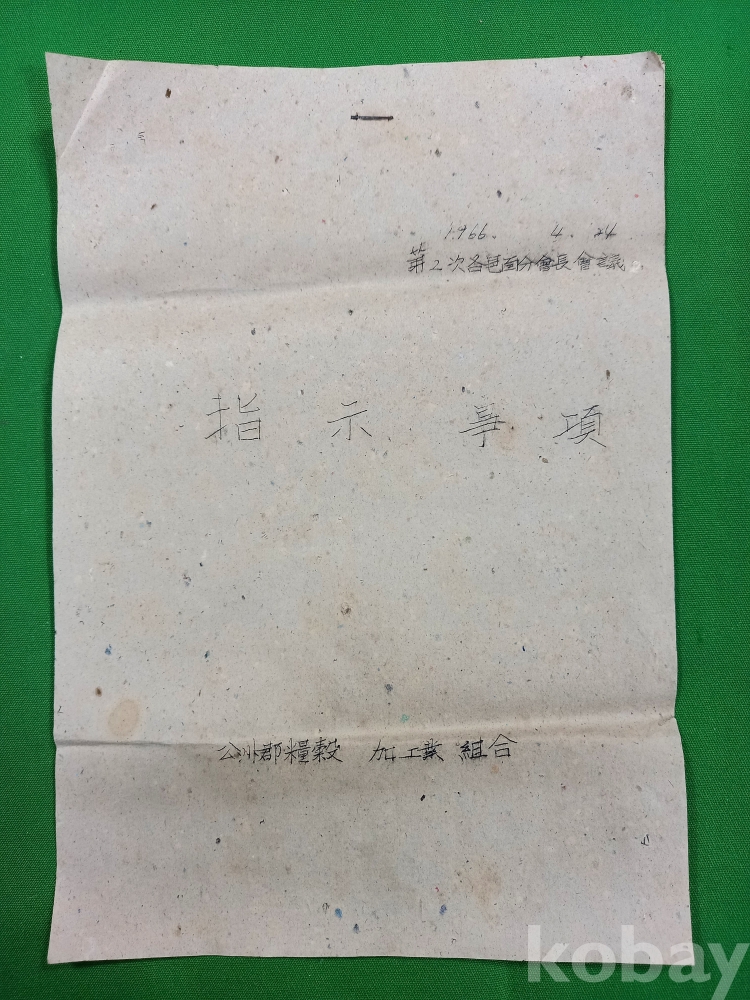 1.966. 4. 24
第2次各邑面分會長會議
指示事項
公州郡糧穀 加工業 組合
kobay